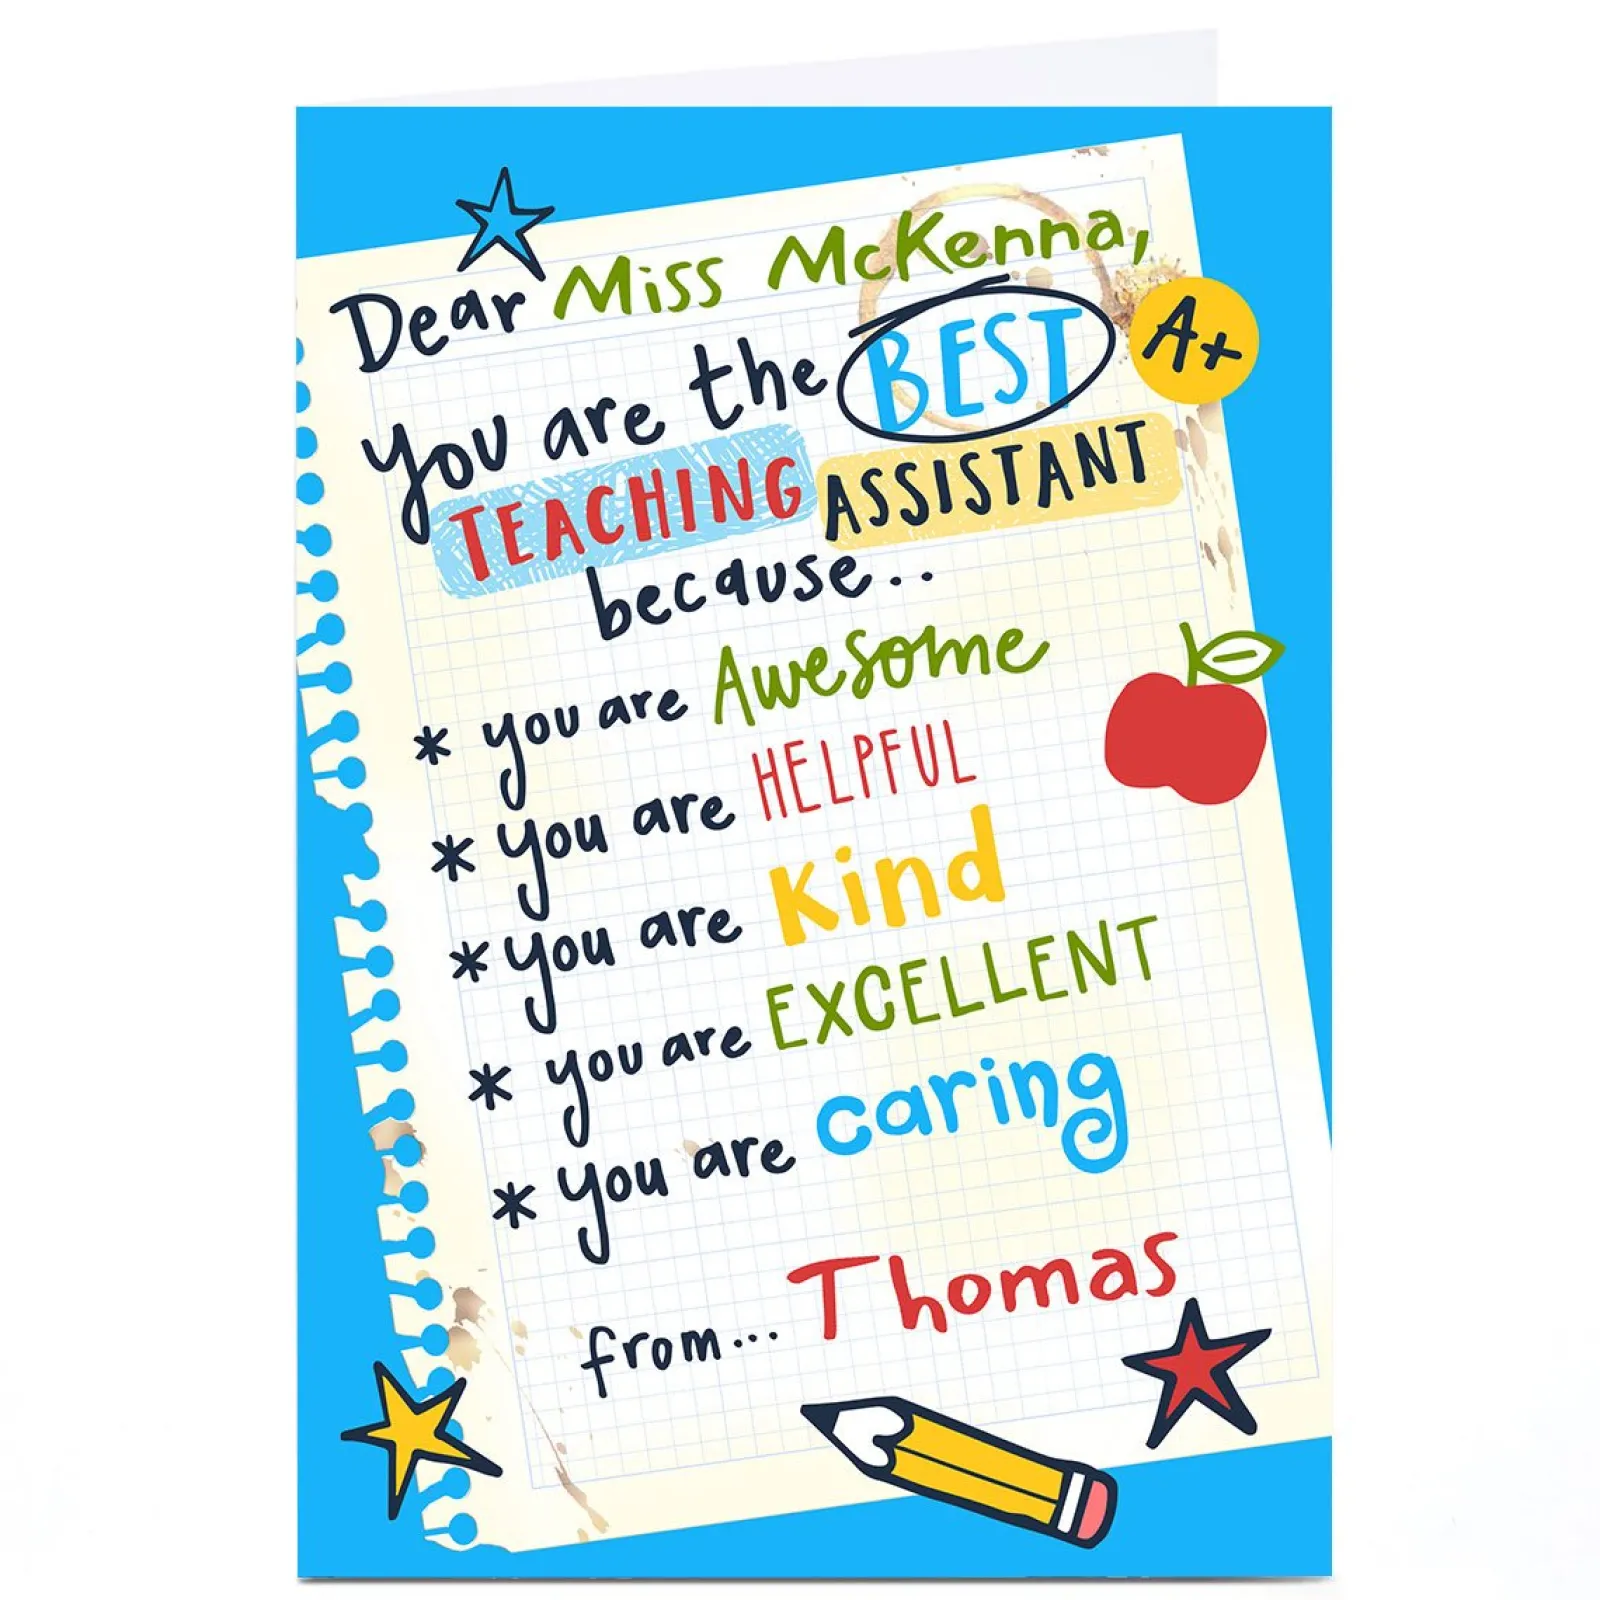 Dear Miss McKenna,
you are the BEST A+
TEACHING ASSISTANT
because..
* you are Awesome
* you are HELPFUL
* you are kind
* you are EXCELLENT
* you are caring
from... Thomas